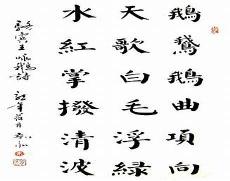 鵝鵞鵝曲項向
天歌白毛浮綠
水紅掌撥清波
駱賓王咏鵝詩